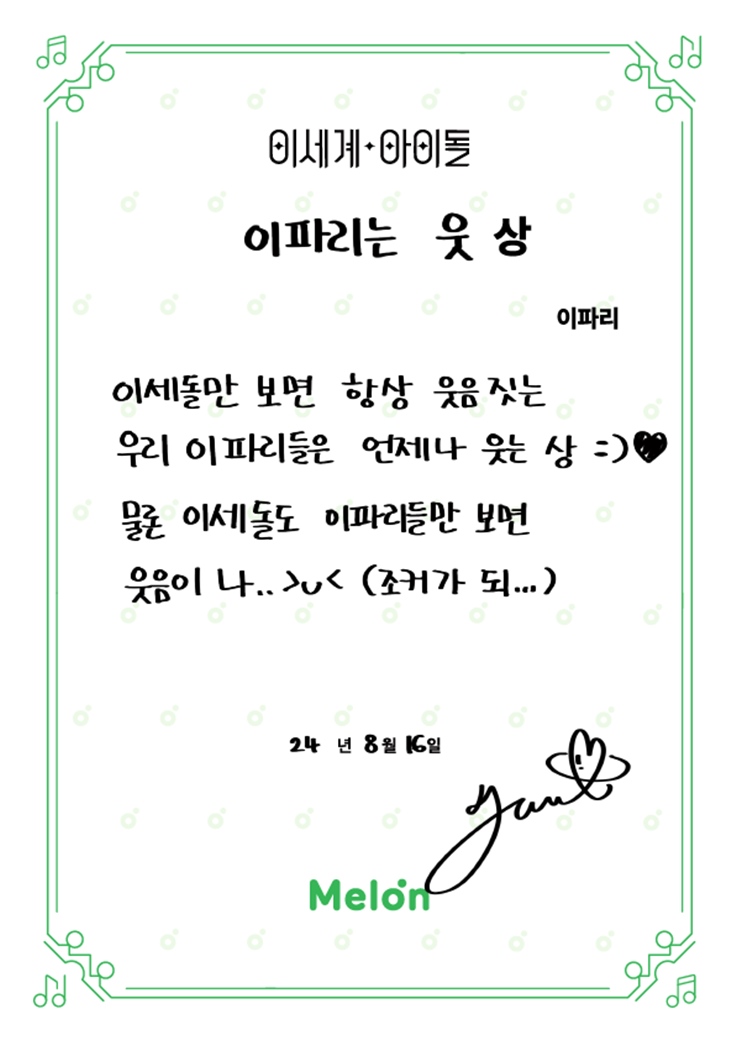 이세계아이돌
이파리는 웃 상
이파리
이세돌만 보면 항상 웃음 짓는
우리 이파리들은 언제나 웃는 상 =)♥
물론 이세돌도 이파리들만 보면
웃음이 나.. >u< (조커가 되...)
24 년 8월 16일
Melon